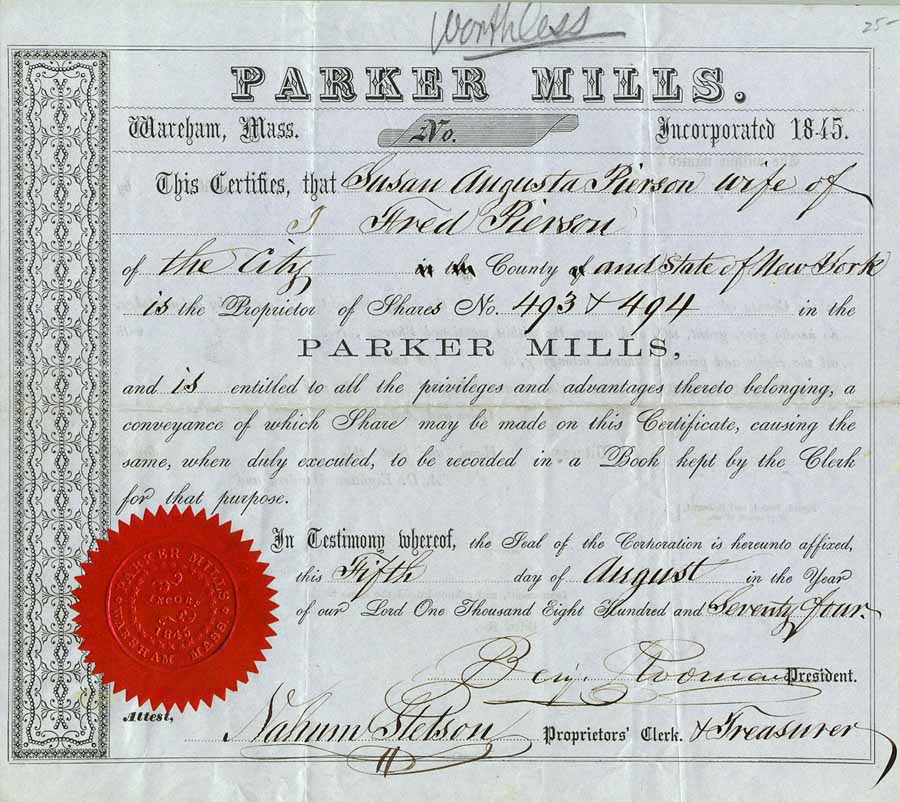 Worthless
25-
PARKER MILLS.
Wareham, Mass. No. Incorporated 1845.
This Certifies, that Susan Augusta Pierson wife of
J Fred Pierson
of the City in the County of and State of New York
is the Proprietor of Shares No. 493 & 494 in the
PARKER MILLS,
and is entitled to all the privileges and advantages thereto belonging, a
conveyance of which Share may be made on this Certificate, causing the
same, when duly executed, to be recorded in a Book kept by the Clerk
for that purpose.
In Testimony whereof, the Seal of the Corporation is hereunto affixed,
this Fifth day of August in the Year
of our Lord One Thousand Eight Hundred and Seventy four.
PARKER MILLS
INCORP
1845
WAREHAM MASS
Benj. President.
Attest,
Nahum Stetson Proprietors' Clerk. & Treasurer